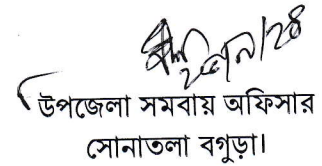 উপজেলা সমবায় অফিসার
সোনাতলা বগুড়া।